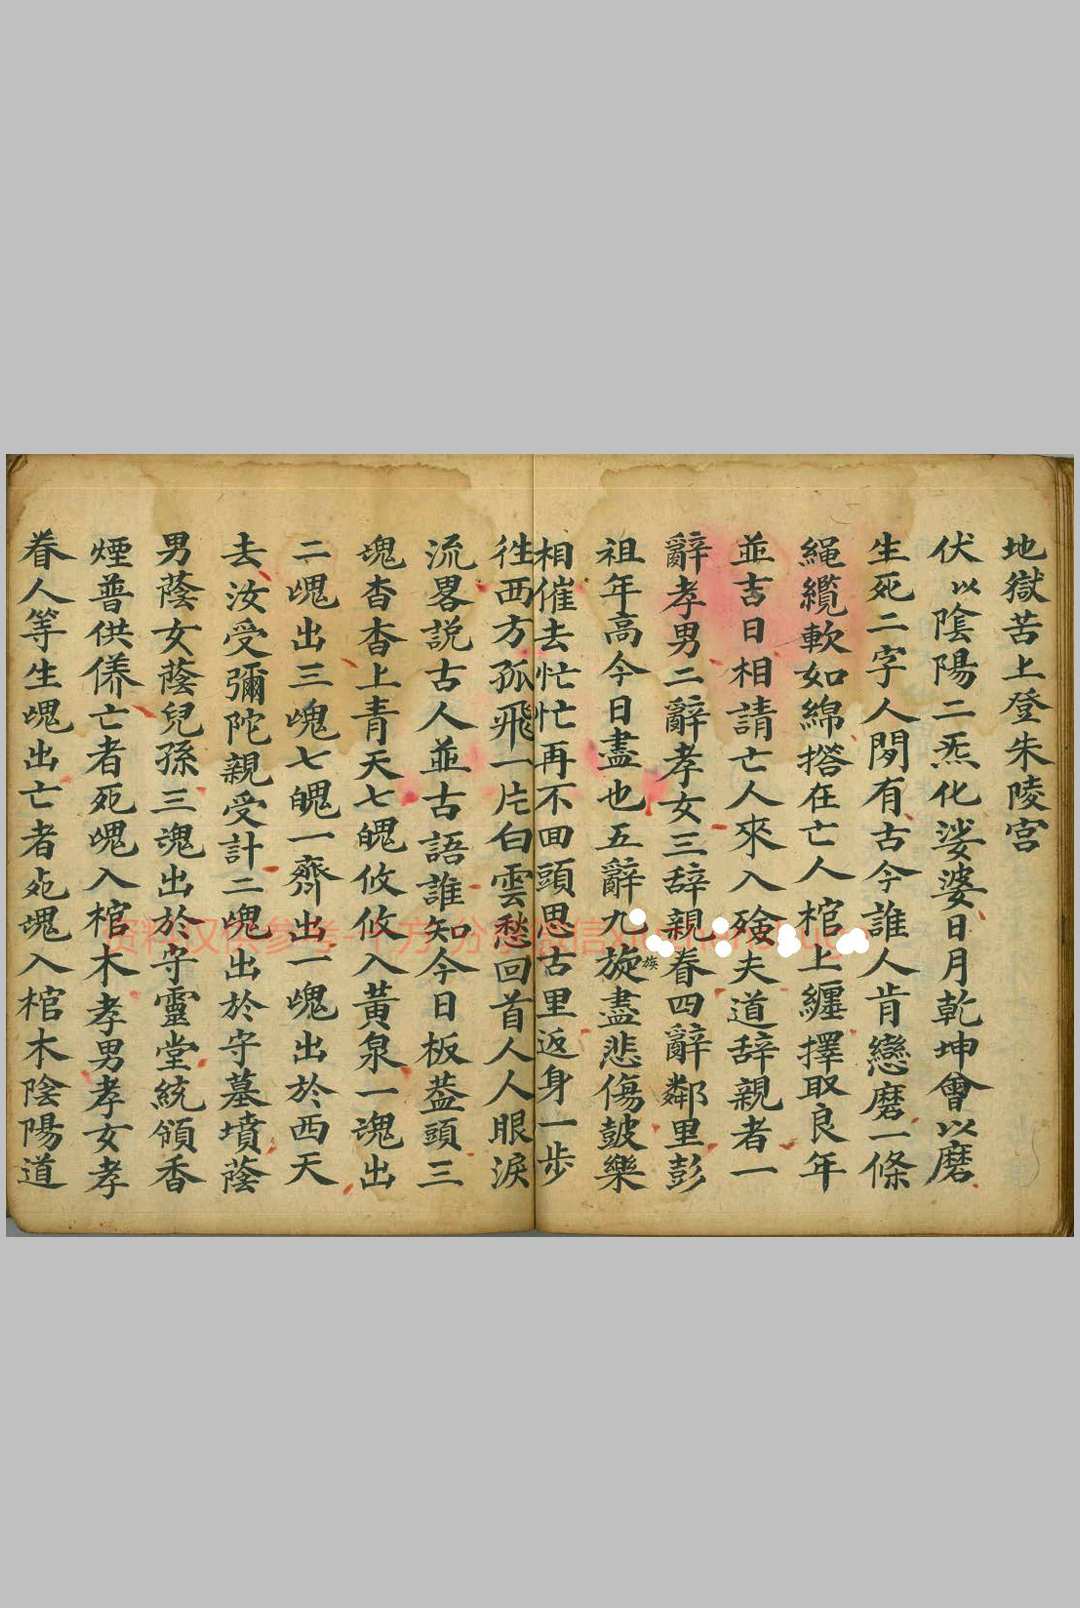 地獄苦上登朱陵宮
伏以陰陽二炁化娑婆日月乾坤會以磨
生死二字人間有古今誰人肯戀磨一條
繩纜軟如綿撘在亡人棺上纏擇取良年
並吉日相請亡人來入殮夫道辞親者一
辭孝男二辭孝女三辞親眷四辭鄰里彭
祖年高今日盡也五辭九旋族盡悲傷皷樂
相催去忙忙再不回頭思古里返身一步
徃西方孤飛一片白雲愁回首人人眼淚
流畧説古人並古語誰知今日板葢頭三
魂杳杳上青天七魄攸攸入黃泉一魂出
二魂出三魂七魄一齊出一魂出於西天
去汝受彌陀親受計二魂出於守墓墳蔭
男蔭女蔭兒孫三魂出於守靈堂統領香
煙普供養亡者死魂入棺木孝男孝女孝
眷人等生魂出亡者死魂入棺木陰陽道
资料仅供参考